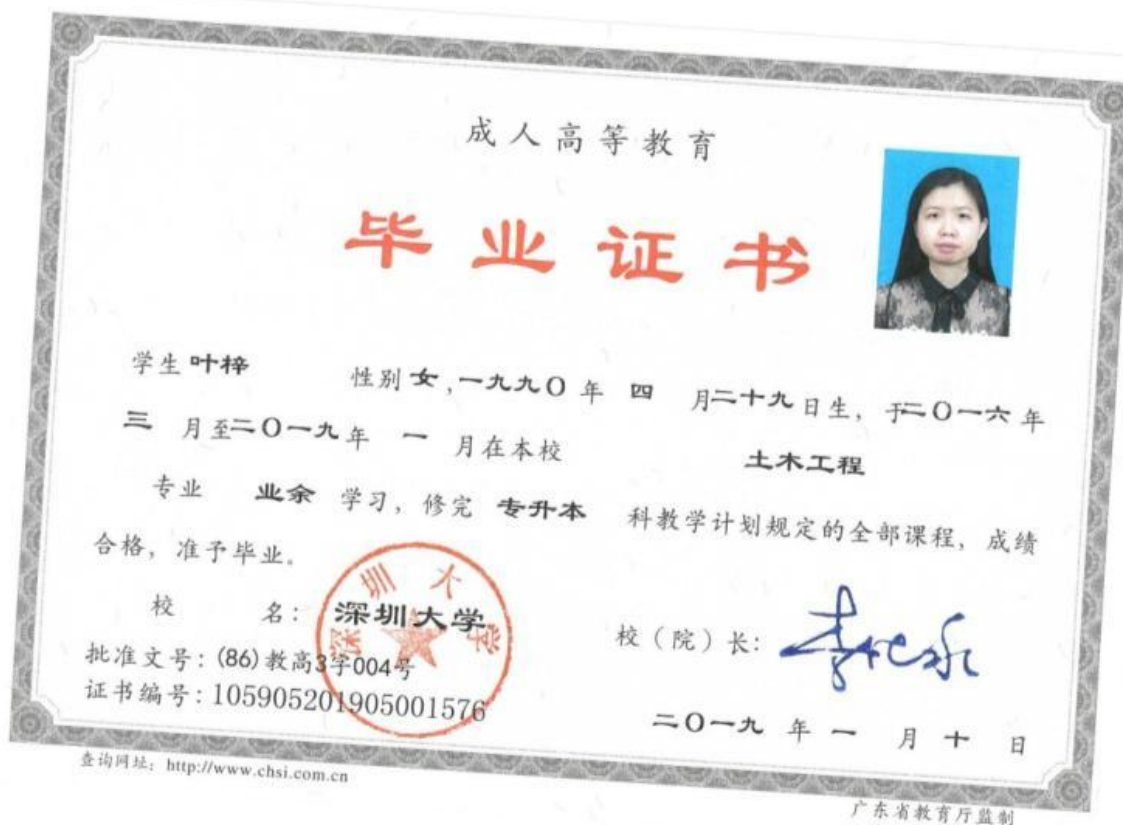 成人高等教育
毕业证书
学生 叶梓 性别 女,一九九〇年 四 月二十九日生,于二〇一六年
三 月至二〇一九年 一 月在本校 土木工程
专业 业余 学习,修完 专升本 科教学计划规定的全部课程,成绩
合格,准予毕业。
校 名: 深圳大学
深圳大学
校(院)长:
批准文号:(86)教高3字004号
证书编号:105905201905001576
二〇一九 年 一 月 十 日
查询网址:http://www.chsi.com.cn
广东省教育厅监制